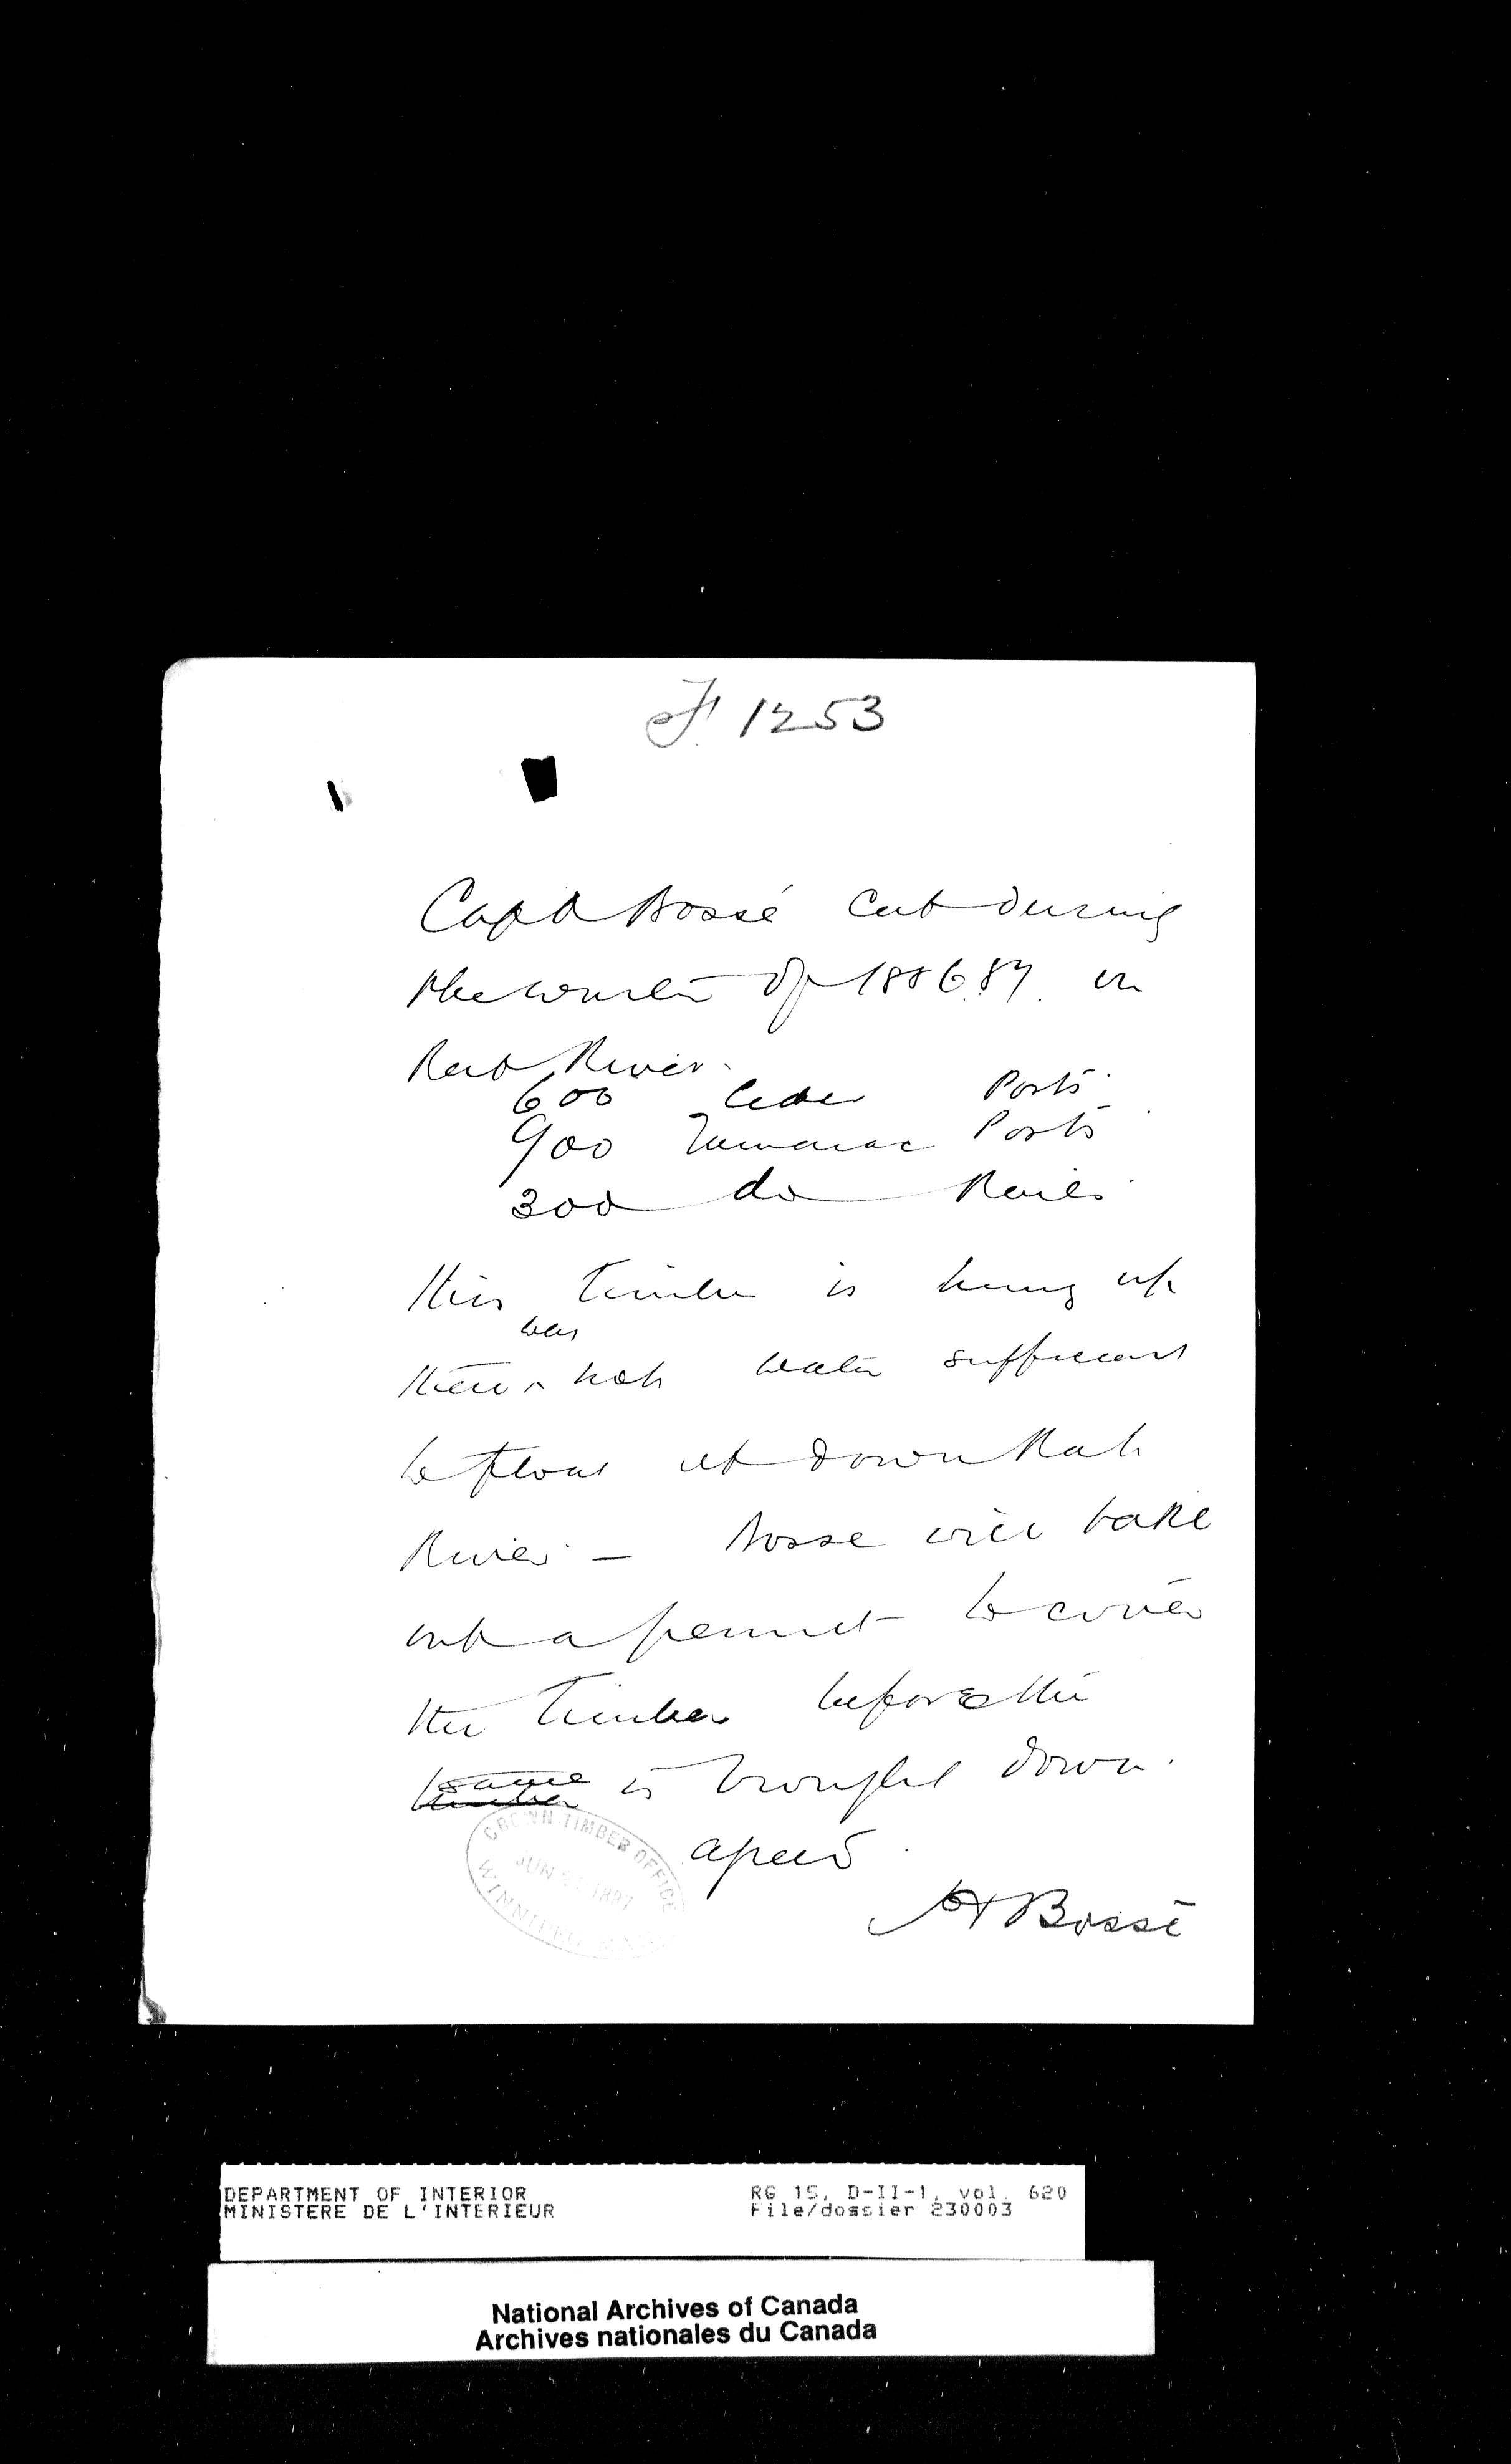 F 1253
Capt Bossé cut during
the winter of 1886.87. on
Rat River.
600 Cedar Posts
900 Tamarac Posts
300 do Rails
This timber is hung up
was
there ^ not water sufficient
to float it down Rat
River — Bosse will take
out a permit to cover
the timber before the
same is brought down.
agreed
H Bossé
CROWN TIMBER OFFICE
JUN 1887
WINNIPEG MAN
DEPARTMENT OF INTERIOR
MINISTERE DE L'INTERIEUR
RG 15, D-II-1, vol. 620
File/dossier 230003
National Archives of Canada
Archives nationales du Canada